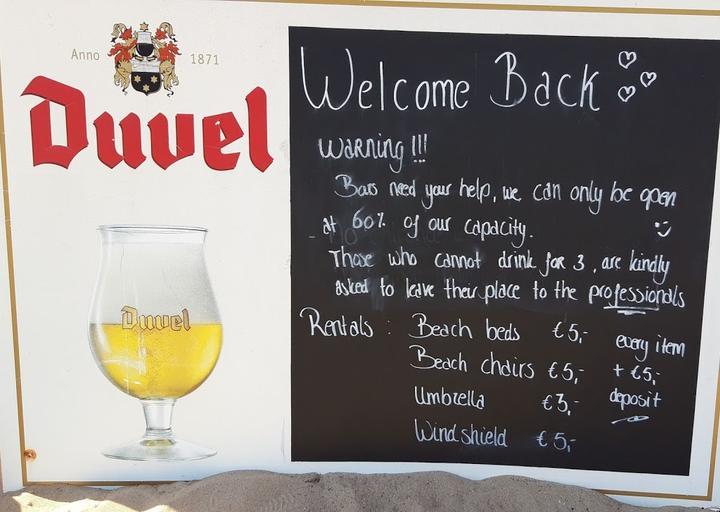 Anno 1871
Duvel
Duvel
Welcome Back
Warning !!!
Bars need your help, we can only be open
at 60% of our capacity.
Those who cannot drink for 3, are kindly
asked to leave their place to the professionals
Rentals : Beach beds €5,-
Beach chairs €5,-
Umbrella €3,-
Windshield €5,-
every item
+ €5,-
deposit